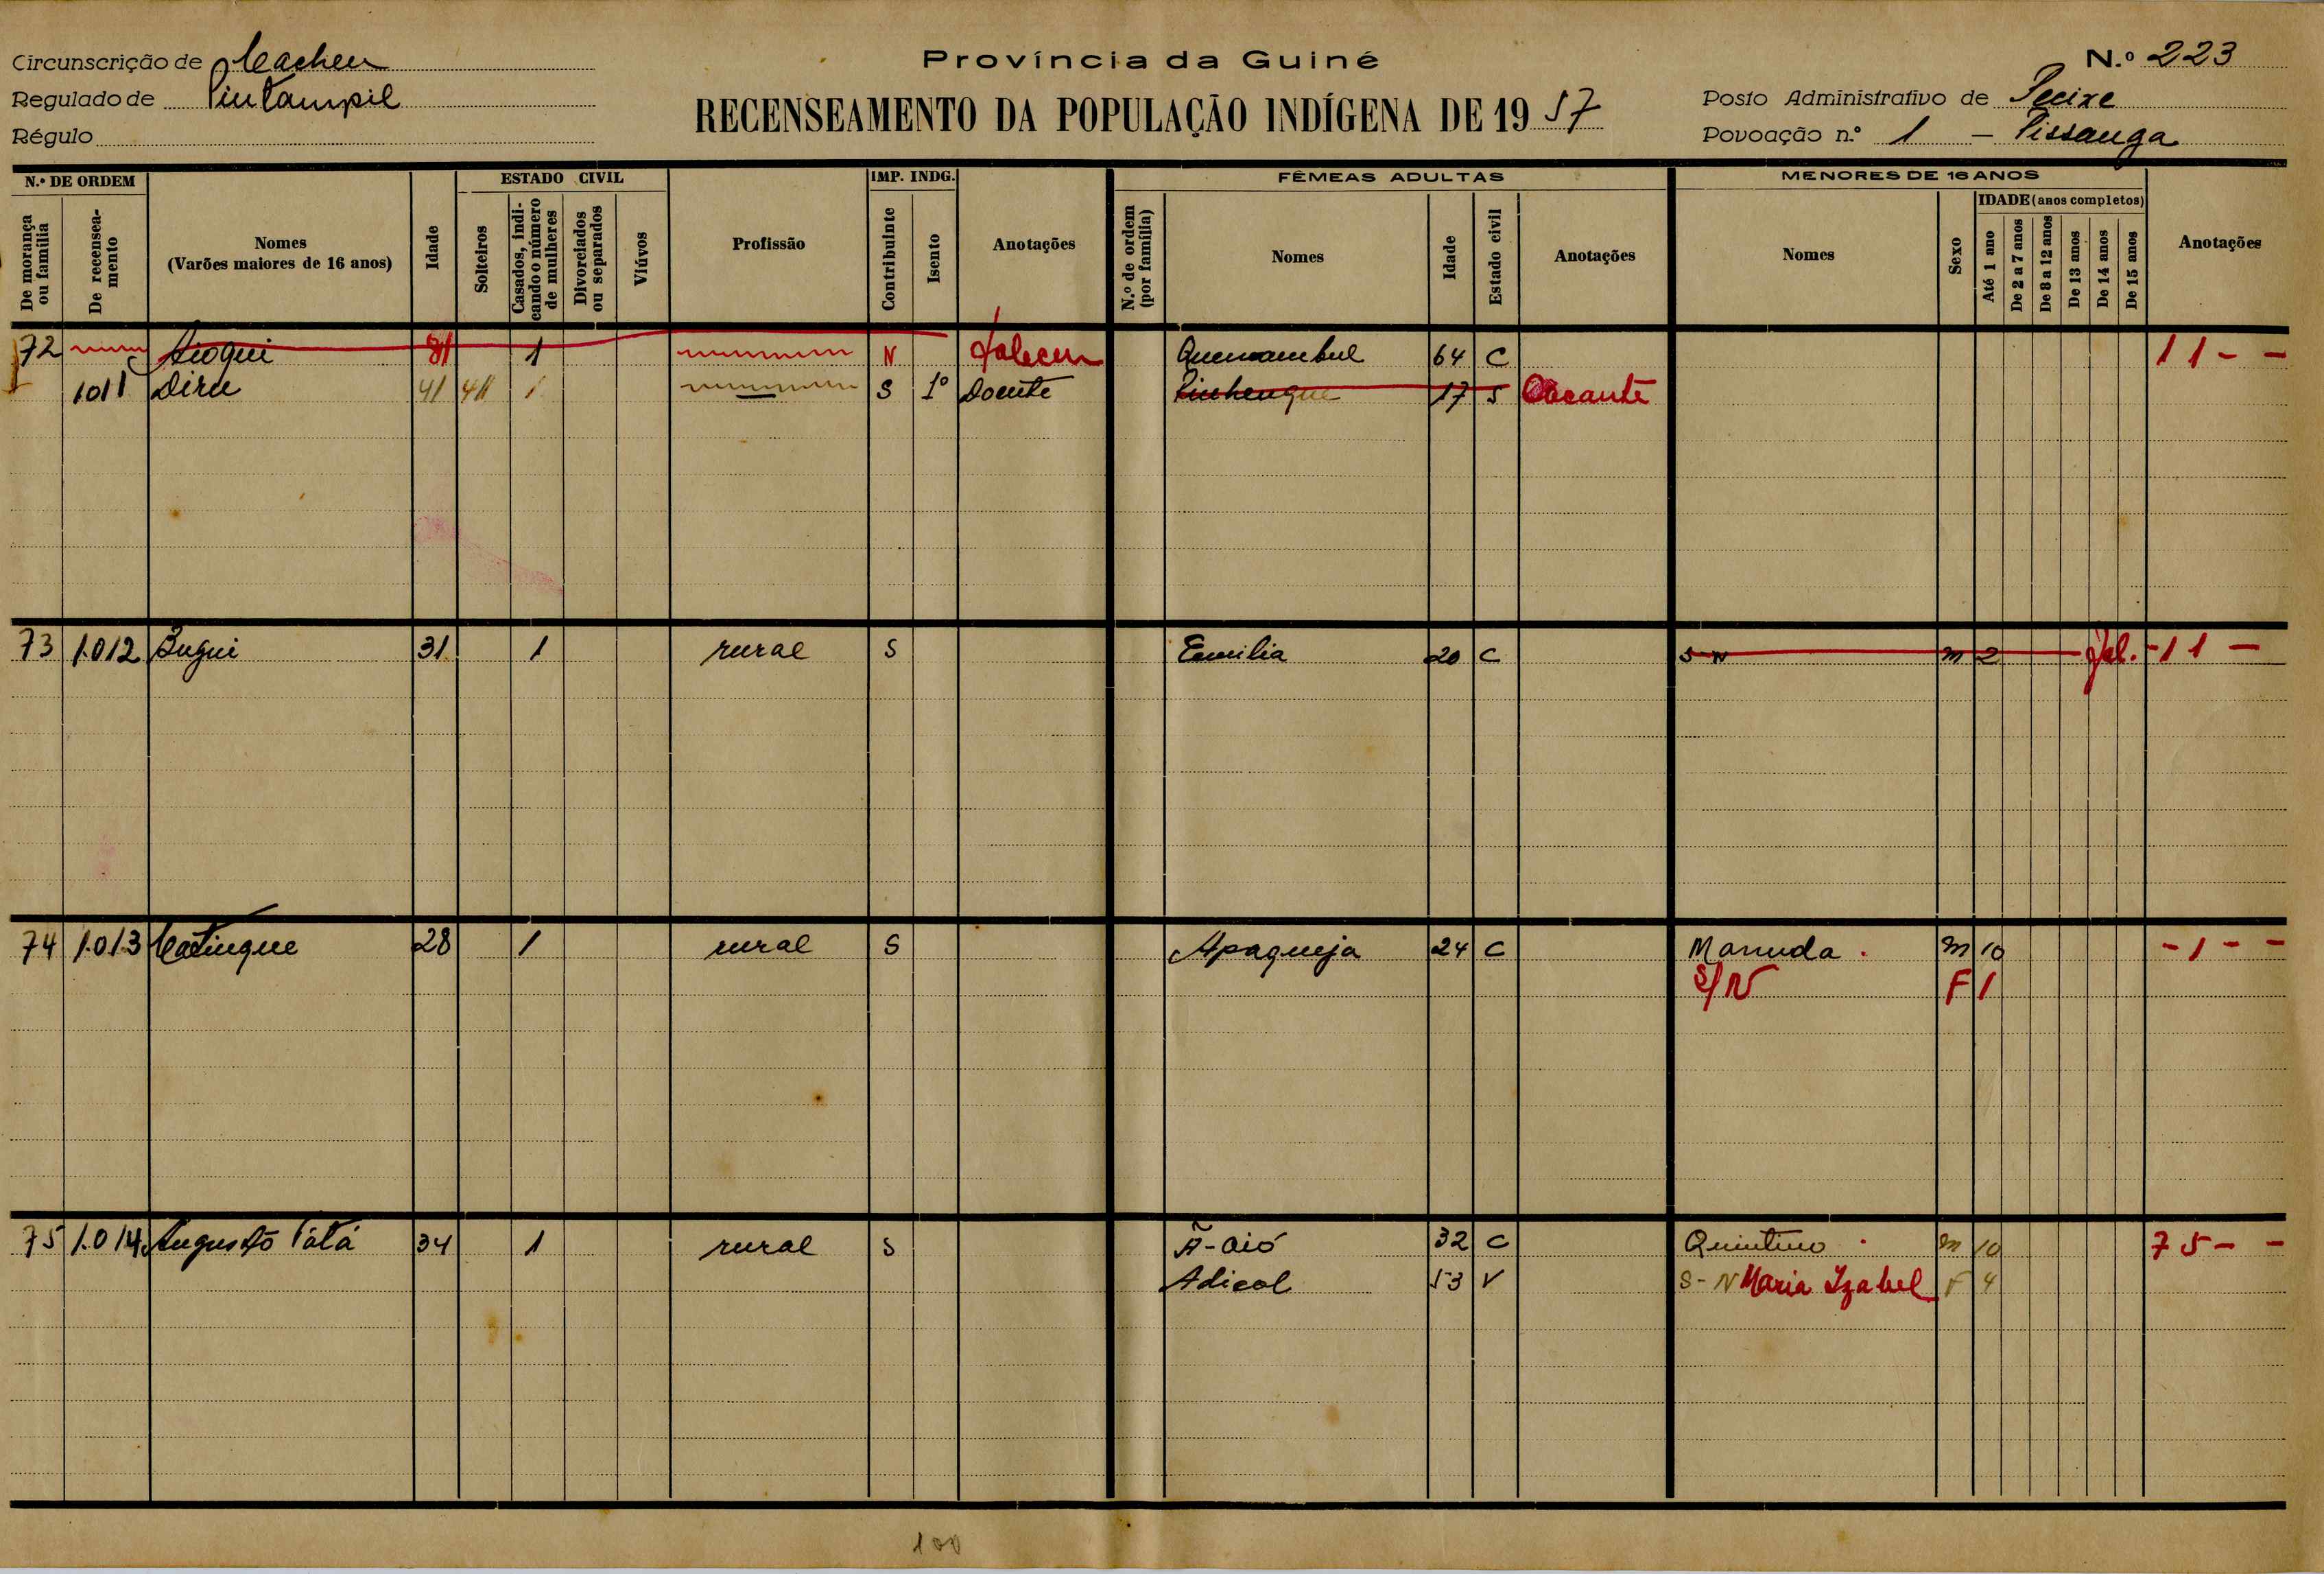 Circunscrição de Cacheu
Província da Guiné
N.º 223
Regulado de Pintampil
RECENSEAMENTO DA POPULAÇÃO INDÍGENA DE 1957
Posto Administrativo de Pecixe
Régulo
Povoação n.º 1 - Pissanga
N.º DE ORDEM
De morança ou família
De recenseamento
Nomes
(Varões maiores de 16 anos)
Idade
ESTADO CIVIL
Solteiros
Casados, indicando o número de mulheres
Divorciados ou separados
Viúvos
Profissão
IMP. INDG.
Contribuinte
Isento
Anotações
FÊMEAS ADULTAS
N.º de ordem (por família)
Nomes
Idade
Estado civil
Anotações
MENORES DE 16 ANOS
Nomes
Sexo
IDADE (anos completos)
Até 1 ano
De 2 a 7 anos
De 8 a 12 anos
De 13 anos
De 14 anos
De 15 anos
Anotações
72 81 1 N 64 C 11 - -
1011 Diru 41 1 S 1º Doente 17 S
73 1.012 Bugui 31 1 rural S Emilia 20 C S-N m 2 Fal. -11 -
74 1.013 Catinque 28 1 rural S Apaqueja 24 C Manuda m 10 -1 - -
S/N F 1
75 1.014 Augusto Tátá 34 1 rural S Ã-aió 32 C Quintino m 10 75 - -
Adicol 53 V S-N Maria Izabel F 4
100